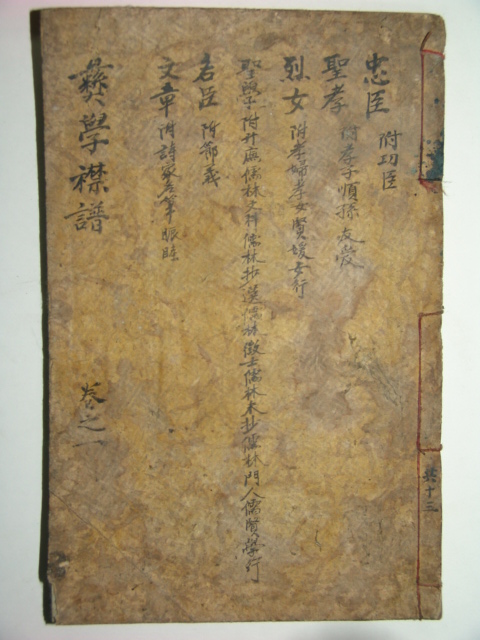 忠臣 附功臣
聖孝 附孝子順孫友愛
烈女 附孝婦孝女賢媛玄行
聖學 附升廡儒林文科儒林抄選儒林徵士儒林本抄儒林門人儒賢學行
名臣 附節義
文章 附詩家名筆
彛學襟譜
卷之一
共十三